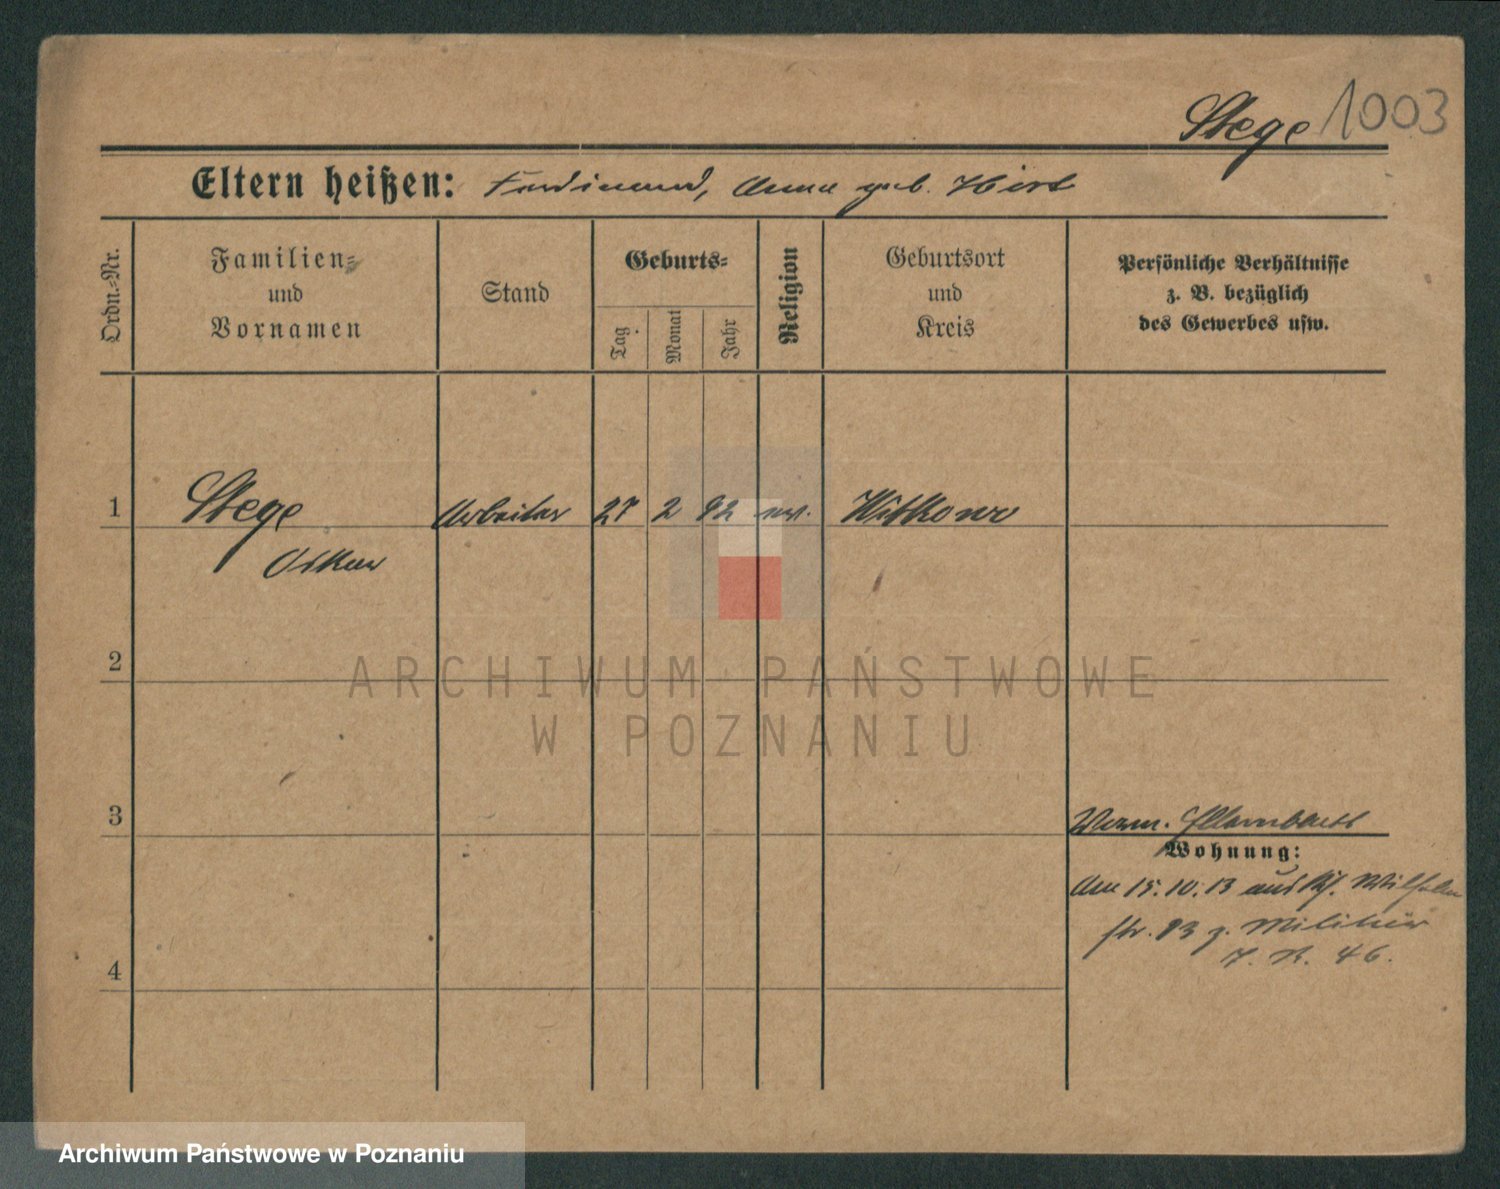 Stege 1003
Eltern heißen: Ferdinand, Anna geb. Hirt
Ordn.-Nr.
Familien-
und
Vornamen
Stand
Geburts-
Tag
Monat
Jahr
Religion
Geburtsort
und
Kreis
Persönliche Verhältnisse
z. B. bezüglich
des Gewerbes usw.
1 Stege Arbeiter 27 2 92 ev. Witkowo
Oskar
2
ARCHIWUM PAŃSTWOWE
W POZNANIU
3
Wohnung:
Am 15.10.13 aus Kf. Wilhelm
str. 93 z. Militär
I. R. 46.
4
Archiwum Państwowe w Poznaniu